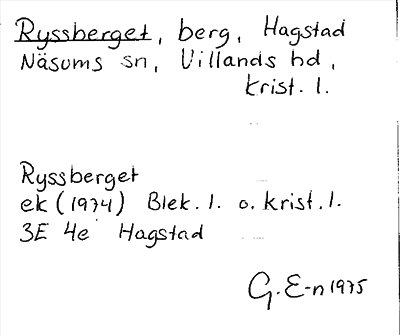 Ryssberget, berg, Hagstad
Näsums sn, Villands hd,
krist. l.
Ryssberget
ek (1974) Blek. l. o. krist. l.
3E 4e Hagstad
G. E-n 1975